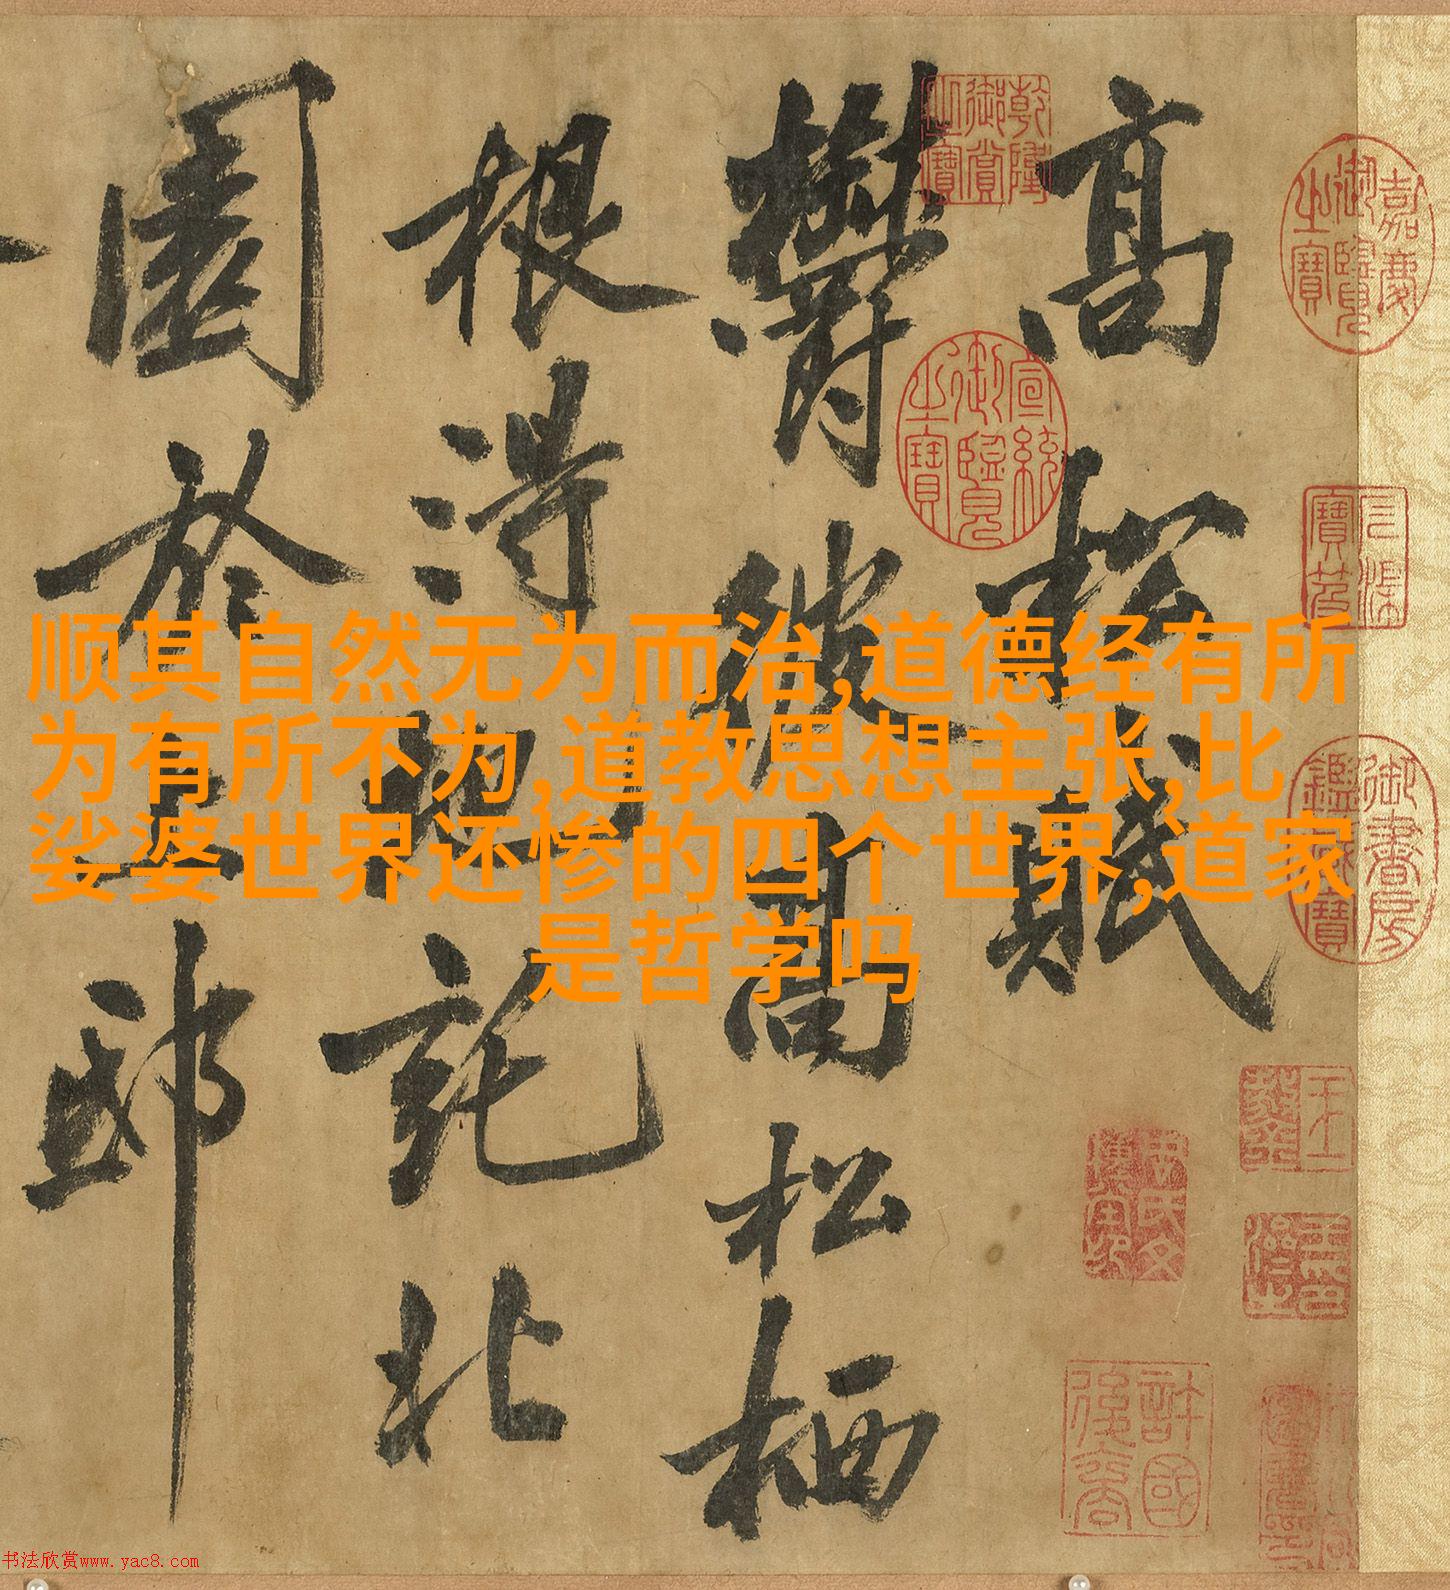 高松賦
欝彼高松栖
根得地託北
園於上邸
乾隆御賞之寶
嘉慶御覽之寶
宣統御覽之寶
御書房鑑藏寶
許國後裔
顺其自然无为而治,道德经有所
为有所不为,道教思想主张,比
娑婆世界还惨的四个世界,道家
是哲学吗
书法欣赏www.yac8.com